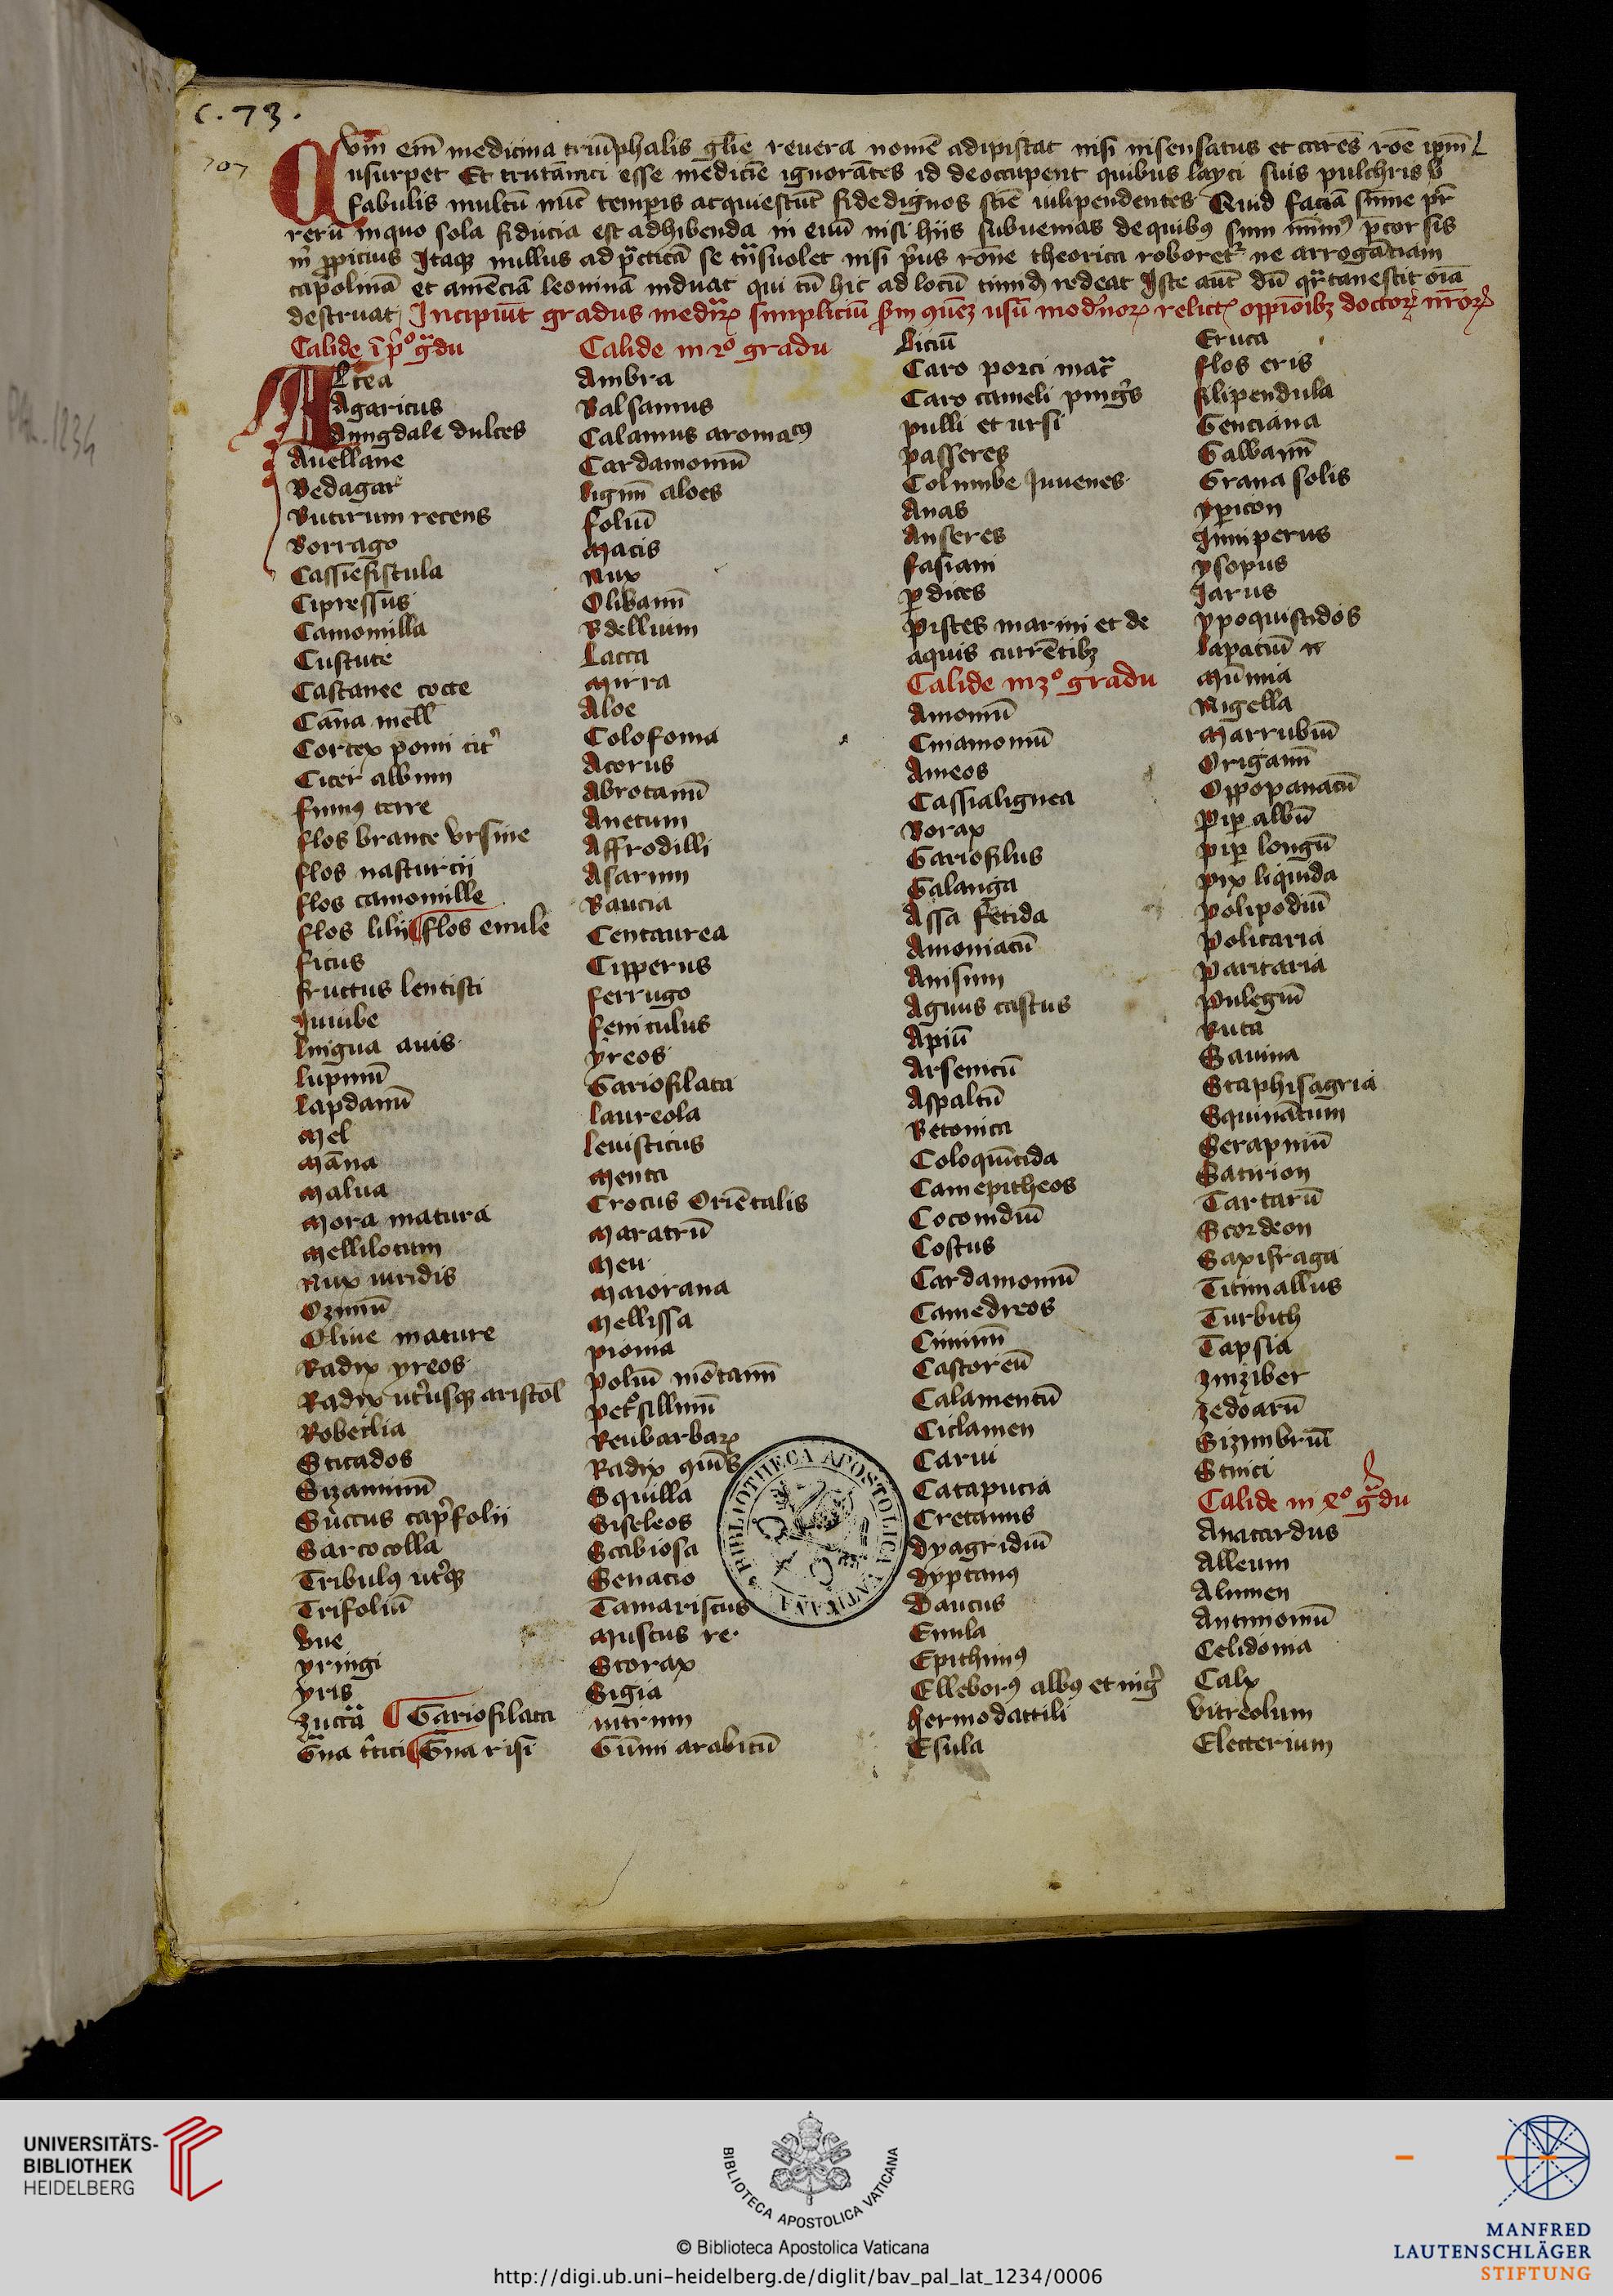 C. 73.
707
Qvm em̄ medicina triūphalis gl̄ie reuera nomē adipiscat nisi insensatus et carēs rōe ip̄m
usurpet Et trutānici esse medicīe ignorātes id deoccupent quibus layci suis pulchris
fabulis multū nūc temp̲is acquiescūt fide dignos sciē uilipendentes Quid faciā sūme pr̄
rerū in quo sola fiducia est adhibenda in euū nisi hiis subuenias de quibus sum
ꝓpicius Itaqꝫ nullus ad practicā se nisi prius rōne theorica roboret ne arrogāciam
et amēciā leoninā induat qui cū hic ad locū redeat Iste aut̄ dū oīa
destruat Incipiūt gradus simpliciū usū modernoꝝ relictꝭ
Calide ī p̄º g̃du
Altea
Agaricus
Amigdale dulces
Auellane
Bedagar
Butirum recens
Borrago
Cassiefistula
Cipressus
Camomilla
Cuscute
Castanee cocte
Cāna mell
Cortex pomi cit̉
Cicer album
Fumꝰ terre
Flos brance vrsine
Flos nasturcii
Flos camomille
Flos lilii Flos enule
Ficus
Fructus lentisci
Iuiube
Lingua auis
Lupinū
Lapdanū
Mel
Māna
Malua
Mora matura
Mellilotum
Nux uiridis
Ozimū
Oliue mature
Radix yreos
Radix ut̉usqꝫ aristol
Robeilia
Sticados
Sizaminū
Succus cap̉folii
Sarcocolla
Tribulꝰ ut̉qꝫ
Trifoliū
Vue
yringi
yris
Zuccā Gariofilata
G̃na t̉tici G̃na risi
Calide in 2º gradu
Ambra
Balsamus
Calamus aromatꝰ
Cardamomū
Lignū aloes
Foliū
Macis
Nux
Olibanū
Bdellium
Lacca
Mirra
Aloe
Colofonia
Acorus
Abrotanū
Anetum
Affrodilli
Asarum
Baucia
Centaurea
Cipperus
Ferrugo
Feniculus
yreos
Gariofilata
Laureola
Leuisticus
Menta
Crocus Oriētalis
Maratrū
Meu
Maiorana
Mellissa
Pionia
Poliū mōtanū
Pet̉sillinū
Reubarbaꝝ
Radix
Squilla
Siseleos
Scabiosa
Senacio
Tamariscus
Muscus re
Storax
Sigia
Nitrum
Gūmi arabicū
Liciū
Caro porci mac̃
Caro cameli ping̉s
Pulli et ursi
Passeres
Columbe Iuuenes
Anas
Anseres
Fasiani
Ꝑdices
Pisces marini et de
aquis currētibꝫ
Calide in 3º gradu
Amomū
Cinamomū
Ameos
Cassialignea
Borax
Gariofilus
Galanga
Assa fetida
Amoniacū
Anisum
Agnus castus
Apiū
Arsenicū
Aspaltū
Betonica
Coloquītida
Camepitheos
Coconidiū
Costus
Cardamomū
Camedreos
Ciminū
Castoreū
Calamentū
Ciclamen
Carui
Catapucia
Cretanus
Dyagridiū
Dyptanꝰ
Daucus
Enula
Epithimꝰ
Elleborꝰ albꝰ et nig̉
Hermodattili
Esula
Eruca
Flos eris
Filipendula
Genciana
Galbanū
Grana solis
Yꝑicon
Iuniperus
ysopus
Iarus
ypoquistidos
Lapaciū
Mūmia
Nigella
Marrubiū
Origanū
Oppopanacū
Piꝑ albū
Piꝑ longū
Pix liquida
Polipodiū
Policaria
Paritaria
Pulegiū
Ruta
Sauina
Staphisagria
Squinātum
Serapinū
Satirion
Tartarū
Scordeon
Saxifraga
Titimallus
Turbith
Tapsia
Zinziber
Zedoarū
Sizimbriū
Stinci
Calide in 4º g̃du
Anacardus
Alleum
Alumen
Antimoniū
Celidonia
Calx
Vitreolum
Electerium
BIBLIOTHECA APOSTOLICA VATICANA
UNIVERSITÄTS-
BIBLIOTHEK
HEIDELBERG
BIBLIOTECA APOSTOLICA VATICANA
© Biblioteca Apostolica Vaticana
http://digi.ub.uni-heidelberg.de/diglit/bav_pal_lat_1234/0006
MANFRED
LAUTENSCHLÄGER
STIFTUNG